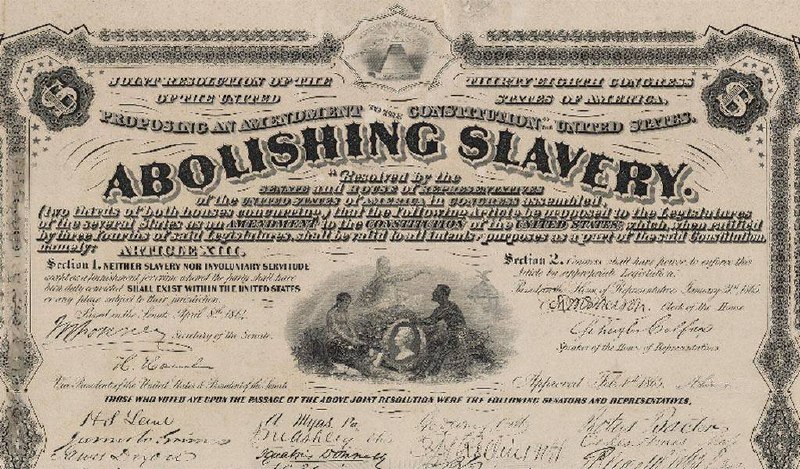 JOINT RESOLUTION OF THE THIRTY EIGHTH CONGRESS
OF THE UNITED STATES OF AMERICA,
PROPOSING AN AMENDMENT TO THE CONSTITUTION OF THE UNITED STATES.
ABOLISHING SLAVERY.
"Resolved by the
SENATE and HOUSE OF REPRESENTATIVES
of the UNITED STATES OF AMERICA IN CONGRESS assembled,
(two thirds of both houses concurring) that the following Article be proposed to the Legislatures
of the several States as an AMENDMENT to the CONSTITUTION of the UNITED STATES which, when ratified
by three fourths of said Legislatures, shall be valid to all intents purposes as a part of the said Constitution,
namely: ARTICLE XIII.
Section 1. NEITHER SLAVERY NOR INVOLUNTARY SERVITUDE
the party shall have
been duly convicted SHALL EXIST WITHIN THE UNITED STATES
or any place subject to their jurisdiction.
Passed in the Senate April 8th 1864.
Secretary of the Senate.
H. Hamlin
Vice President of the United States & President of the Senate
Section 2. Congress shall have power to enforce this
Article by appropriate Legislation.
House of Representatives January 31st 1865
Clerk of the House
Schuyler Colfax
Speaker of the House of Representatives
Approved Feb. 1st 1865.
THOSE WHO VOTED AYE UPON THE PASSAGE OF THE ABOVE JOINT RESOLUTION WERE THE FOLLOWING SENATORS AND REPRESENTATIVES,
H S Lane
Ignatius Donnelly